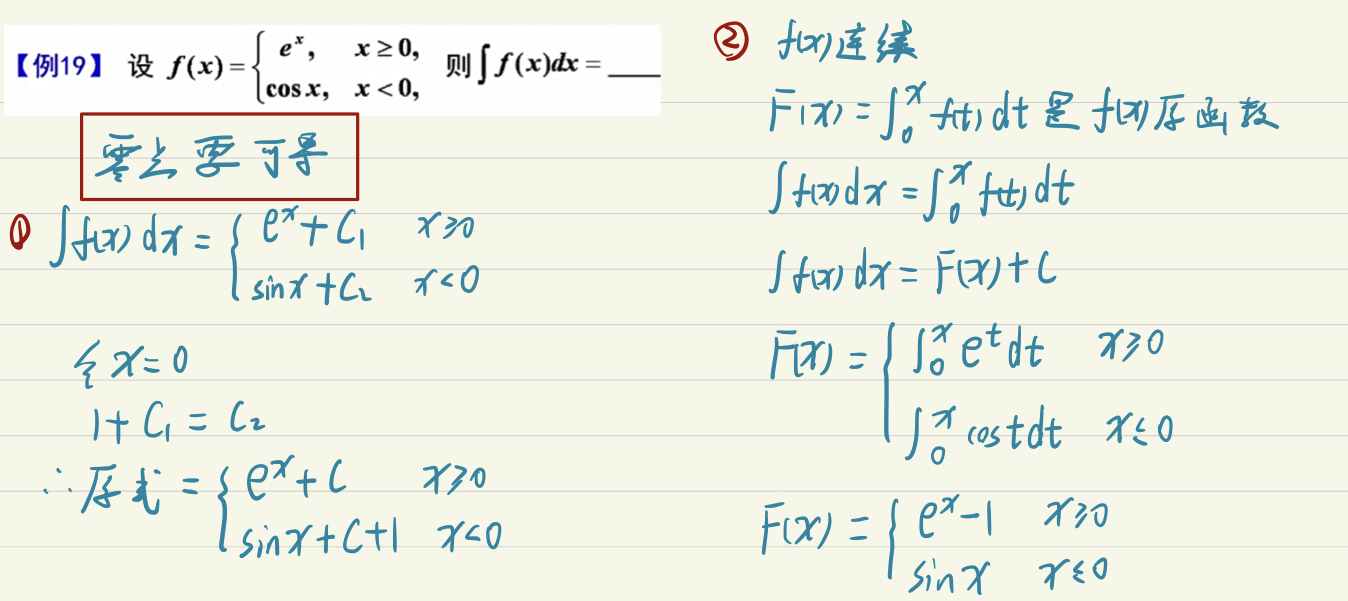 【例19】 设 f(x) = { e^x, x ≥ 0,
cos x, x < 0, 则 ∫ f(x)dx = ____
零点要可导
① ∫f(x) dx = { e^x + C₁ x≥0
sinx + C₂ x<0
令 x = 0
1 + C₁ = C₂
∴ 原式 = { e^x + C x≥0
sinx + C + 1 x<0
② f(x)连续
F(x) = ∫₀^x f(t) dt 是 f(x)原函数
∫f(x)dx = ∫₀^x f(t) dt
∫f(x) dx = F(x) + C
F(x) = { ∫₀^x e^t dt x≥0
∫₀^x cost dt x≤0
F(x) = { e^x - 1 x≥0
sinx x≤0